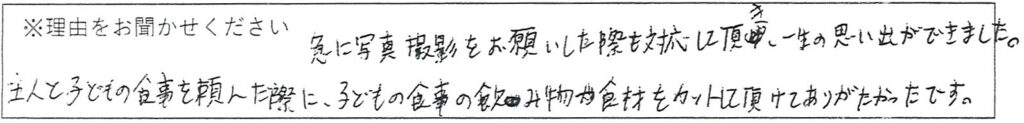 ※理由をお聞かせください
急に写真撮影をお願いした際も対応して頂き、一生の思い出ができました。
主人と子どもの食事を頼んだ際に、子どもの食事の飲み物や食材をカットして頂けてありがたかったです。